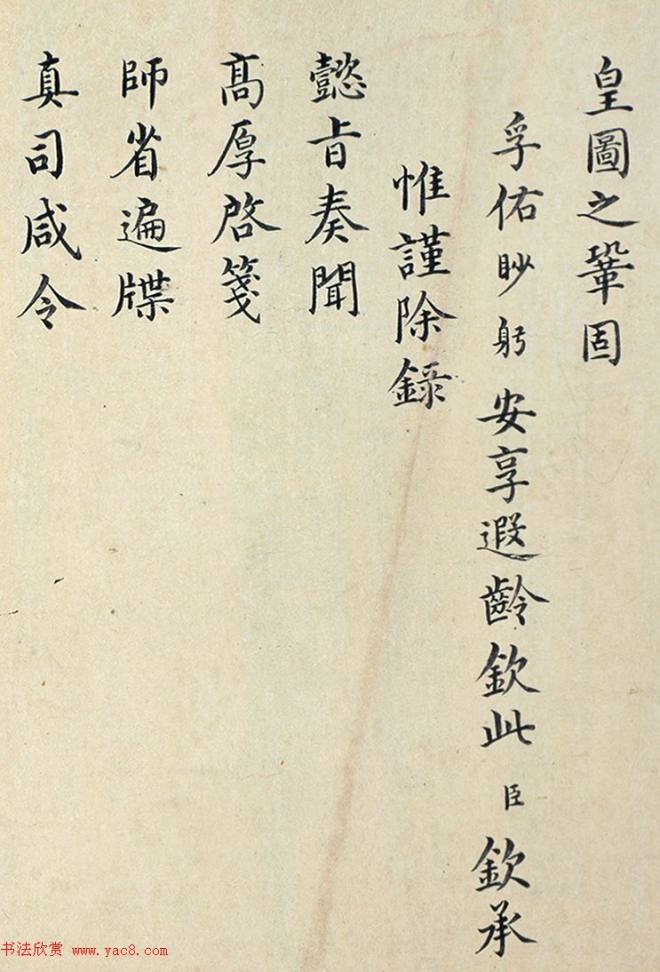 皇圖之鞏固
孚佑眇躬安享遐齡欽此臣欽承
惟謹除錄
懿旨奏聞
高厚啓箋
師省遍牒
真司咸令
书法欣赏 www.yac8.com